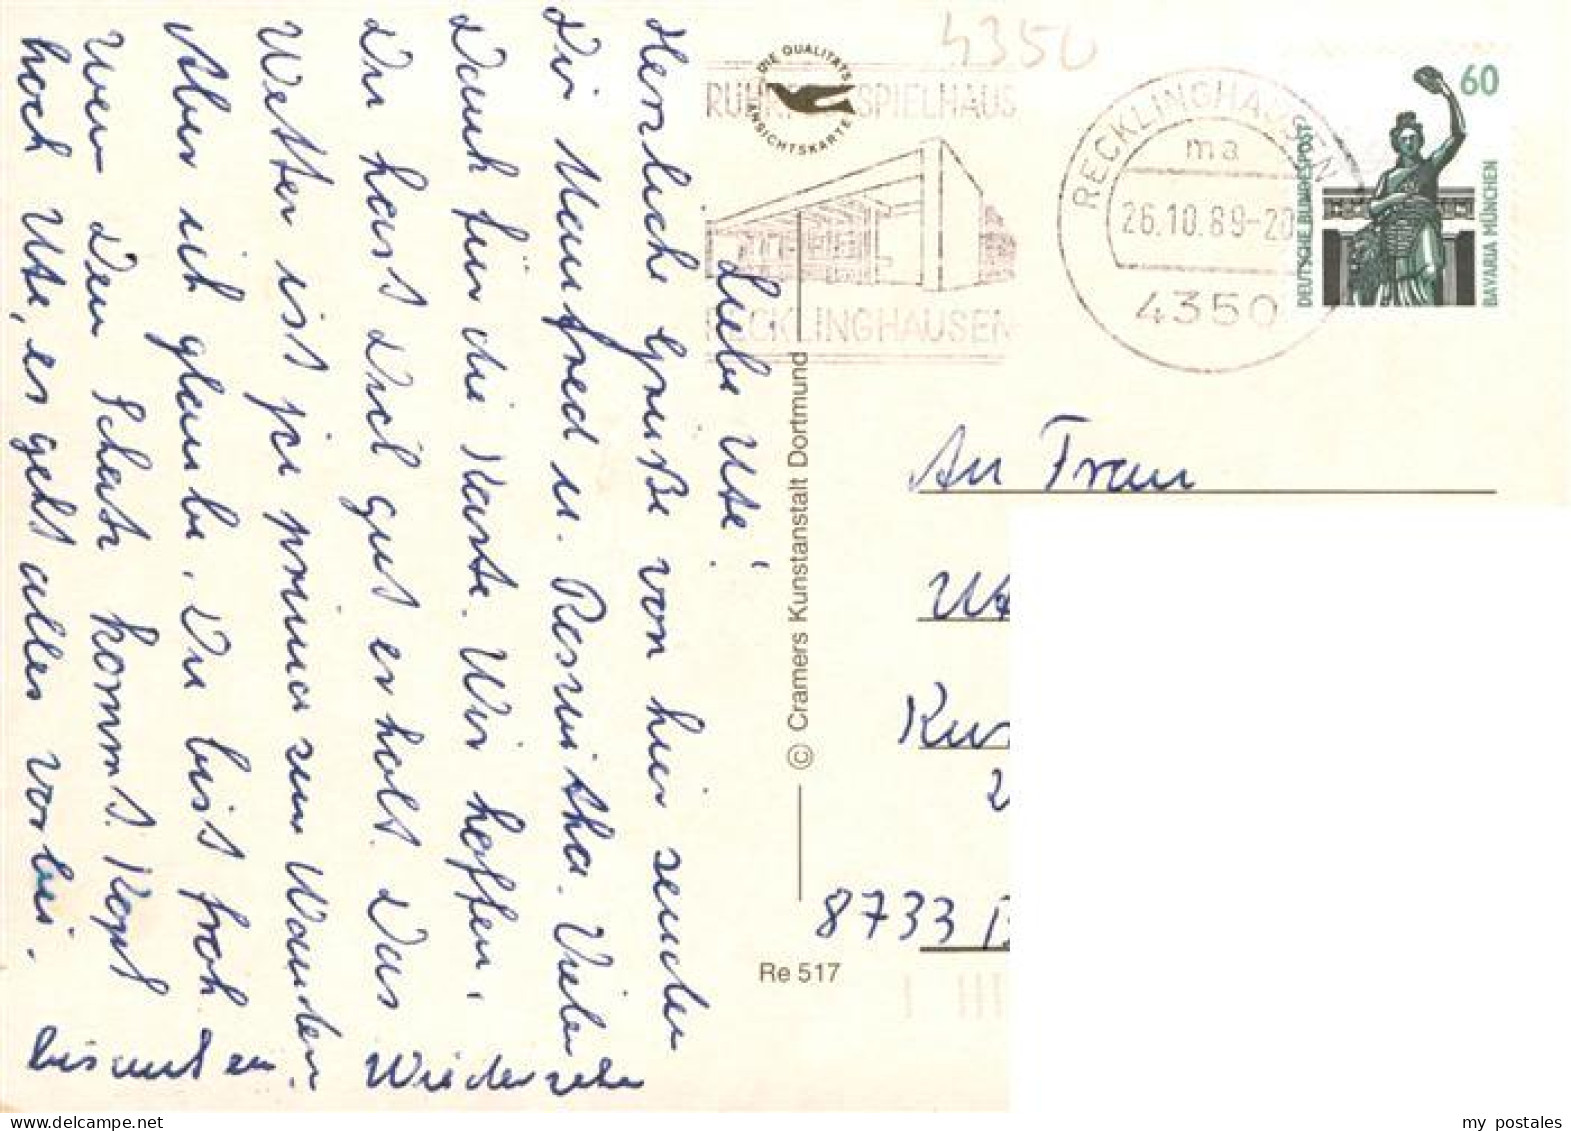 Liebe Ute!
Herzliche Grüße von hier senden
Dir Manfred u. Roswitha. Vielen
Dank für die Karte. Wir hoffen,
Du hast Dich gut erholt. Das
Wetter ist ja prima zum Wandern.
Aber ich glaube, Du bist froh
wenn Dein Schatz kommt. Kopf
hoch Ute, es geht alles vorbei.
bis auf ein Wiedersehn
DIE QUALITÄTS
ANSICHTSKARTE
© Cramers Kunstanstalt Dortmund
Re 517
4350
SPIELHAUS
RECKLINGHAUSEN
RECKLINGHAUSEN
ma
26.10.89-20
4350
60
DEUTSCHE BUNDESPOST
BAVARIA MÜNCHEN
An Frau
8733
my_postales